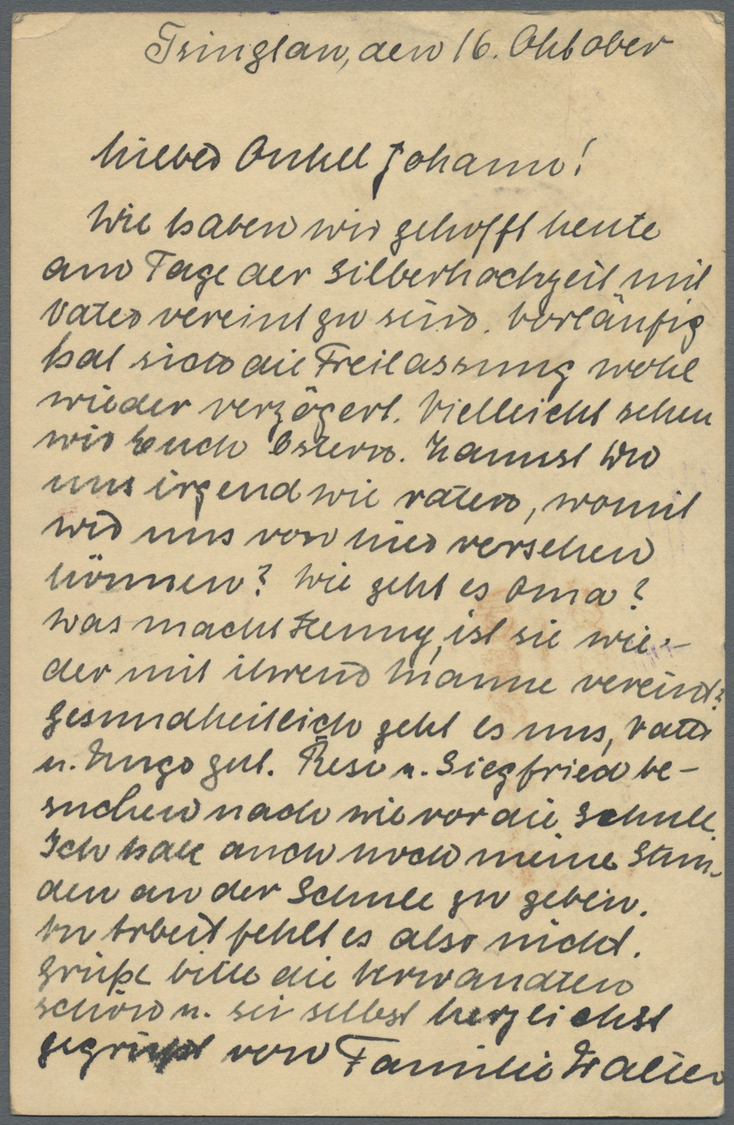 Tsingtau, den 16. Oktober
Lieber Onkel Johann!
Wie haben wir gehofft heute
am Tage der Silberhochzeit mit
Vater vereint zu sein. Vorläufig
hat sich die Freilassung wohl
wieder verzögert. Vielleicht sehen
wir Euch Ostern. Kannst Du
uns irgendwie raten, womit
wir uns von hier versehen
können? Wie geht es Oma?
Was macht Henny, ist sie wie-
der mit ihrem Manne vereint?
Gesundheitlich geht es uns, Vater
u. Hugo gut. Resi u. Siegfried be-
suchen nach wie vor die Schule.
Ich habe auch noch meine Stun-
den an der Schule zu geben.
An Arbeit fehlt es also nicht.
Grüße bitte die Verwandten
schön u. sei selbst herzlichst
gegrüßt von Familie Walter